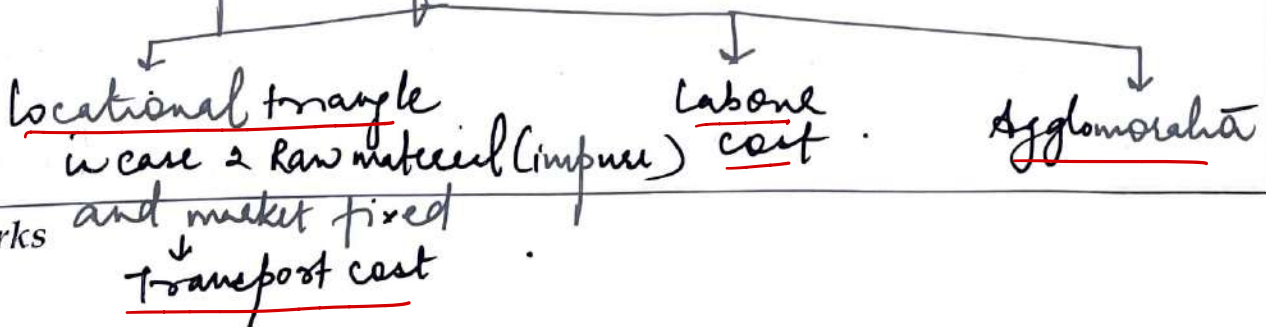 Locational triangle
in case 2 Raw material (impure)
and market fixed
Transport cost
Labour
cost .
Agglomoratiā
rks